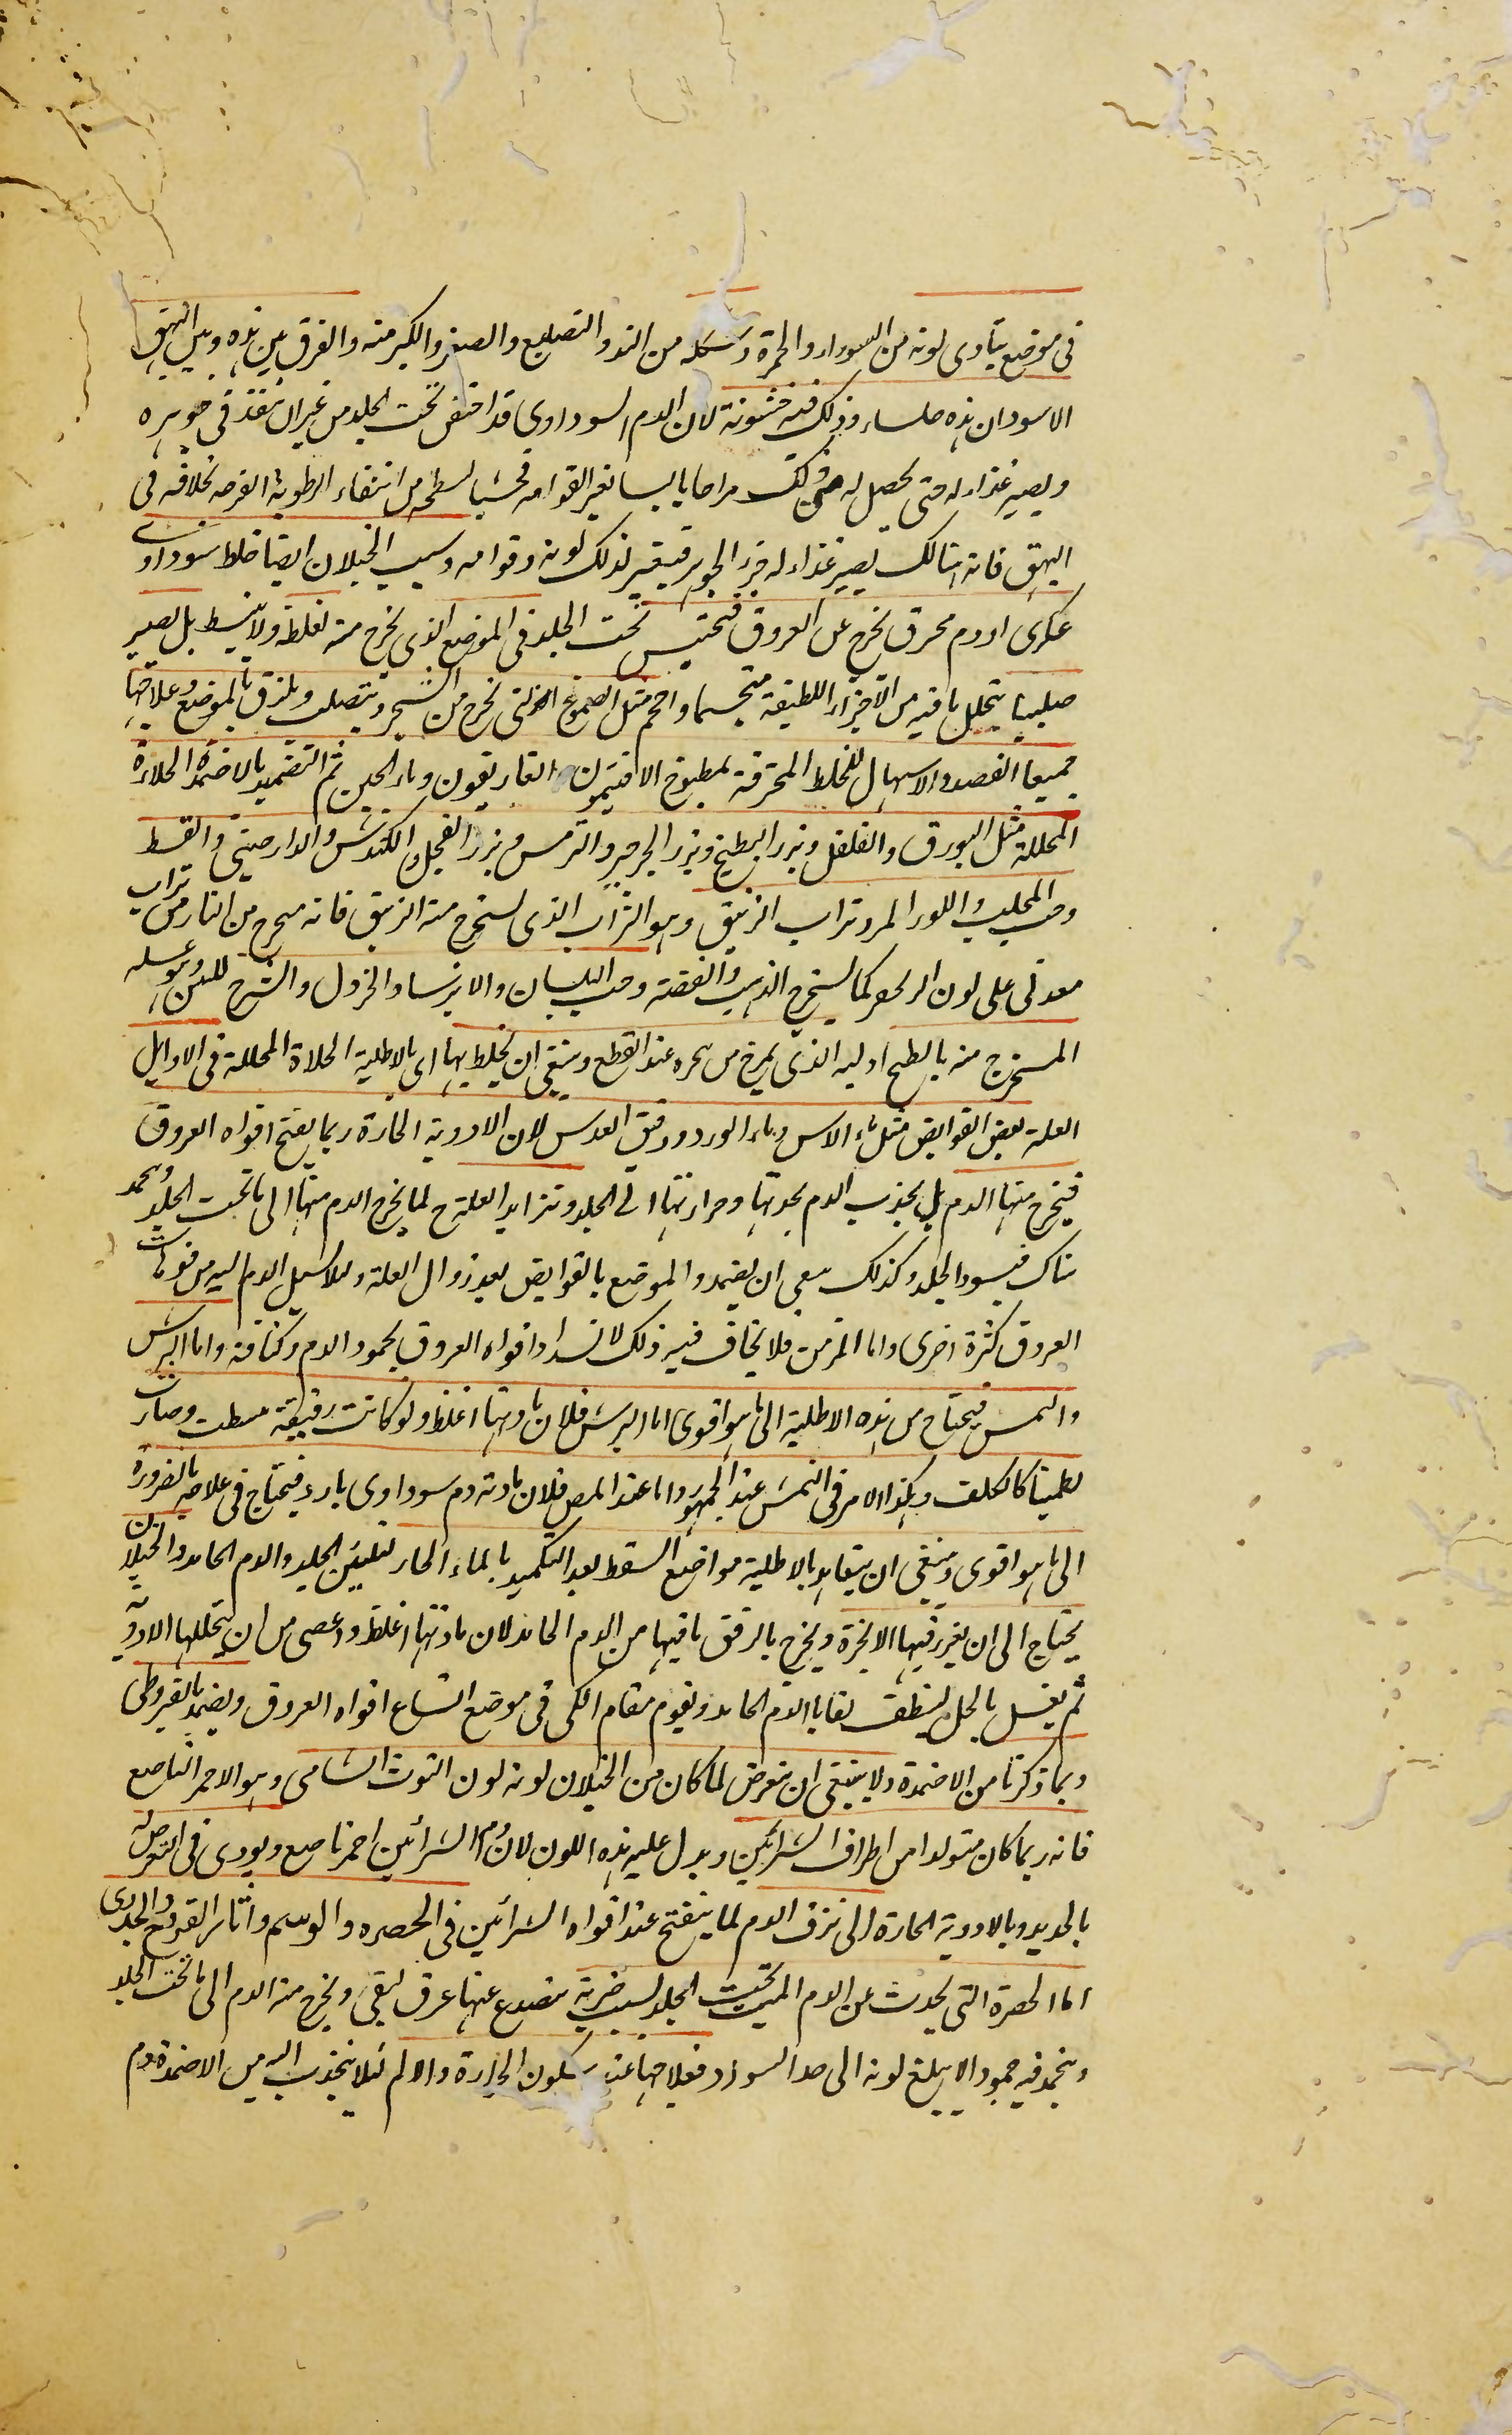 فى موضع يتأدى لونه من السواد والحمرة وشكله من التدوير والتضليع والصغر والكبر منه والفرق بين هذه وبين البهق
الاسود ان هذه ملساء وذلك فيه خشونة لان الدم السوداوى قد احتقن تحت الجلد من غير ان ينفذ فى جوهره
ويصير غذاء له حتى يحصل له من ذلك مزاجا يابسا يغير القوامه فخشبا لسطحه من انتفاء الرطوبة الغرضه بخلافه فى
البهق فانه هنالك يصير غذاء له جزء الجوهر فيتغير لذلك لونه وقوامه وسبب الخيلان ايضا خلط سوداوى
عكرى او دم محرق يخرج عن العروق فيحتبس تحت الجلد فى الموضع الذى يخرج منه لغلظه ولا ينبسط بل يصير
صلبا يتحلل ما فيه من الاجزاء اللطيفة متجسما واحم مثل الصموغ التى تخرج من الشجر وتتصلب ويلتزق بالموضع وعلاجها
جميعا الفصد والاسهال للخلط المحترقة بمطبوخ الافتيمون والغاريقون وماء الجبن ثم التضميد بالاضمدة الجلاءة
المحللة مثل البورق والفلفل وبزر البطيخ وبزر الجرجير والترمس وبزر الفجل والكندش والدارصينى والقسط
وحب المحلب واللوز المر وتراب الزيبق وهو التراب الذى يستخرج منه الزيبق فانه يخرج من النار من تراب
معدنى على لون الزنجفر كما يستخرج الذهب والفضة وحب البلسان والايرسا والخردل والشيرج للتين وهو عسله
المستخرج منه بالطبخ او لبنه الذى يخرج من شجره عند القطع وينبغى ان يخلط بها اى بالاطلية الجلاءة المحللة فى الاوايل
العلة بعض القوابض مثل ماء الآس وماء الورد ودقيق العدس لان الادوية الحارة ربما يفتح افواه العروق
فيخرج منها الدم بل يجذب الدم بحدتها وحرارتها الى الجلد وتتزايد العلة ح لما يخرج الدم منها الى ما تحت الجلد ويجمد
هناك فيسود الجلد وكذلك ينبغى ان يضمد والموضع بالقوابض بعد زوال العلة ولئلا يسيل الدم اليه من فوهات
العروق كثرة اخرى واما المزمن فلا يخاف فيه ذلك لانسداد افواه العروق بجمود الدم وكثافته واما البرش
والنمش فيحتاج من هذه الاطلية الى ما هو اقوى اما البرش فلان مادتها اغلظ ولو كانت رقيقة بسطت وصارت
لطميتا كالكلف وهكذا الامر فى النمش عند الجمهور واما عند المص فلان مادته دم سوداوى بارد فيحتاج فى علاجه بالضرورة
الى ما هو اقوى وينبغى ان يتعاهد بالاطلية مواضع السقط بعد التكميد بالماء الحار لتليين الجلد والدم الجامد والخيلان
يحتاج الى ان يغرز فيها الابرة ويخرج بالرفق ما فيها من الدم الجامد لان مادتها اغلظ واعصى من ان يحللها الادوية
ثم يغسل بالخل لينظف بقايا الدم الجامد ويقوم مقام الكى فى موضع اتساع افواه العروق ويضمد بالقيروطى
وبما ذكرنا من الاضمدة ولا ينبغى ان يتعرض لما كان من الخيلان لونه لون التوت الشامى وهو الاحمر الناصع
فانه ربما كان متولدا من اطراف الشرائين ويدل عليه هذه اللون لان دم الشرائين احمر ناصع ويودى فى التعرض له
بالحديد وبالادوية الحارة الى نزف الدم لما ينفتح عند افواه الشرائين فى الخضره والوشم وآثار القروح والجدرى
اما الخضرة التى يحدث عن الدم الميت تحت الجلد لسبب ضربة ينصدع عنها عرق ليفى ويخرج منه الدم الى ما تحت الجلد
ويجمد فيه جمودا لا يبلغ لونه الى حد السواد فعلاجها عند سكون الحرارة والالم لئلا ينجذب اليه من الاضمدة دم